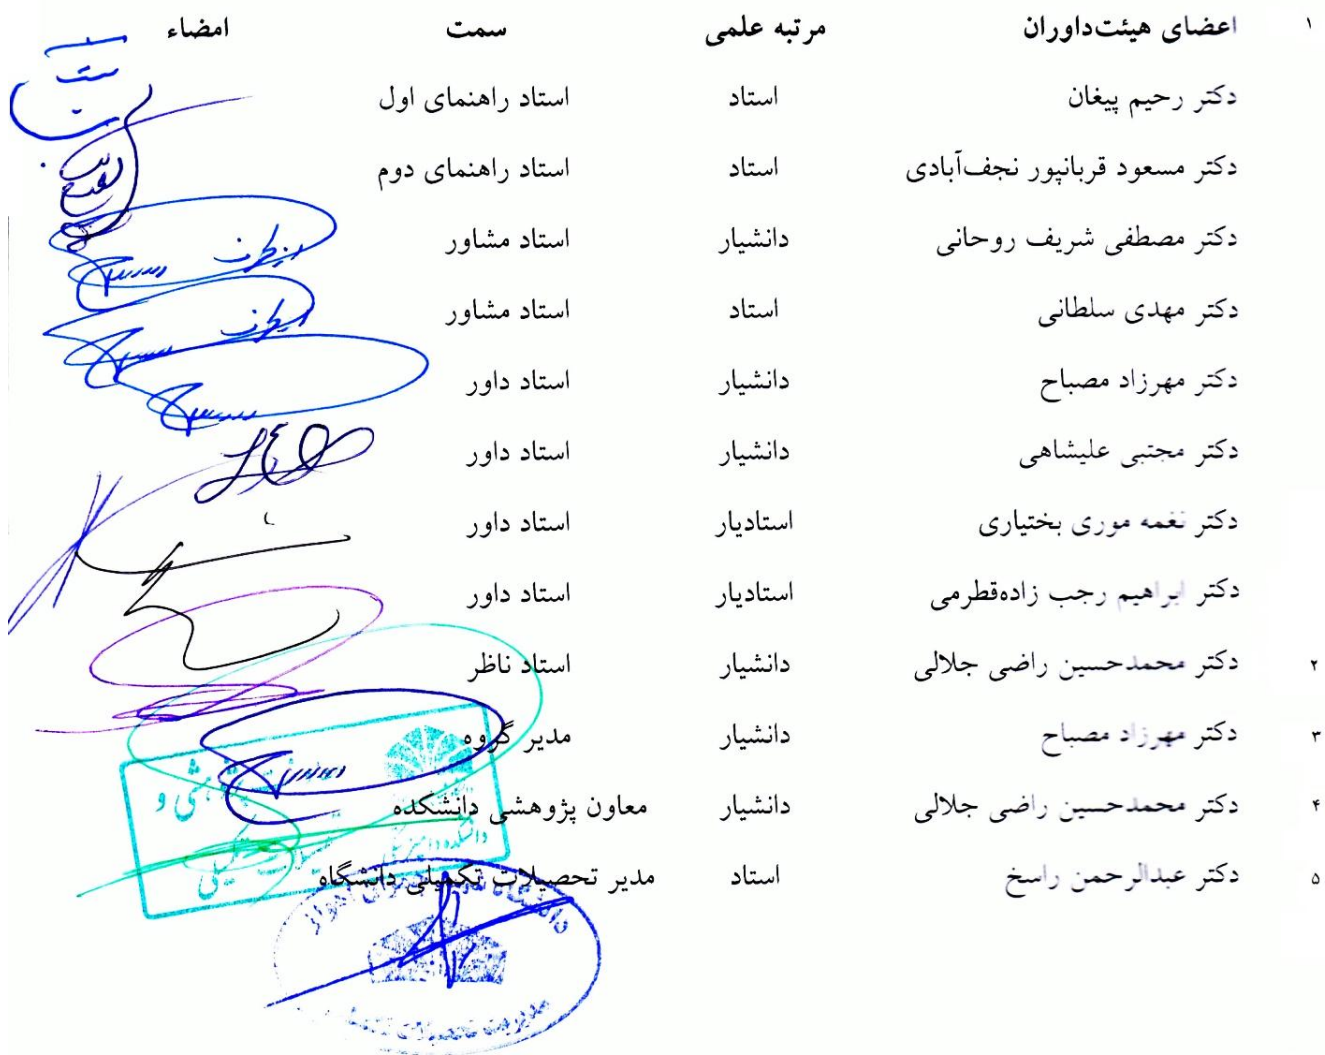 ۱ اعضای هیئت‌داوران مرتبه علمی سمت امضاء
دکتر رحیم پیغان استاد استاد راهنمای اول
دکتر مسعود قربانپور نجف‌آبادی استاد استاد راهنمای دوم
دکتر مصطفی شریف روحانی دانشیار استاد مشاور
دکتر مهدی سلطانی استاد استاد مشاور
دکتر مهرزاد مصباح دانشیار استاد داور
دکتر مجتبی علیشاهی دانشیار استاد داور
دکتر نغمه موری بختیاری استادیار استاد داور
دکتر ابراهیم رجب زاده‌قطرمی استادیار استاد داور
۲ دکتر محمدحسین راضی جلالی دانشیار استاد ناظر
۳ دکتر مهرزاد مصباح دانشیار مدیر گروه
۴ دکتر محمدحسین راضی جلالی دانشیار معاون پژوهشی دانشکده
۵ دکتر عبدالرحمن راسخ استاد مدیر تحصیلات تکمیلی دانشگاه